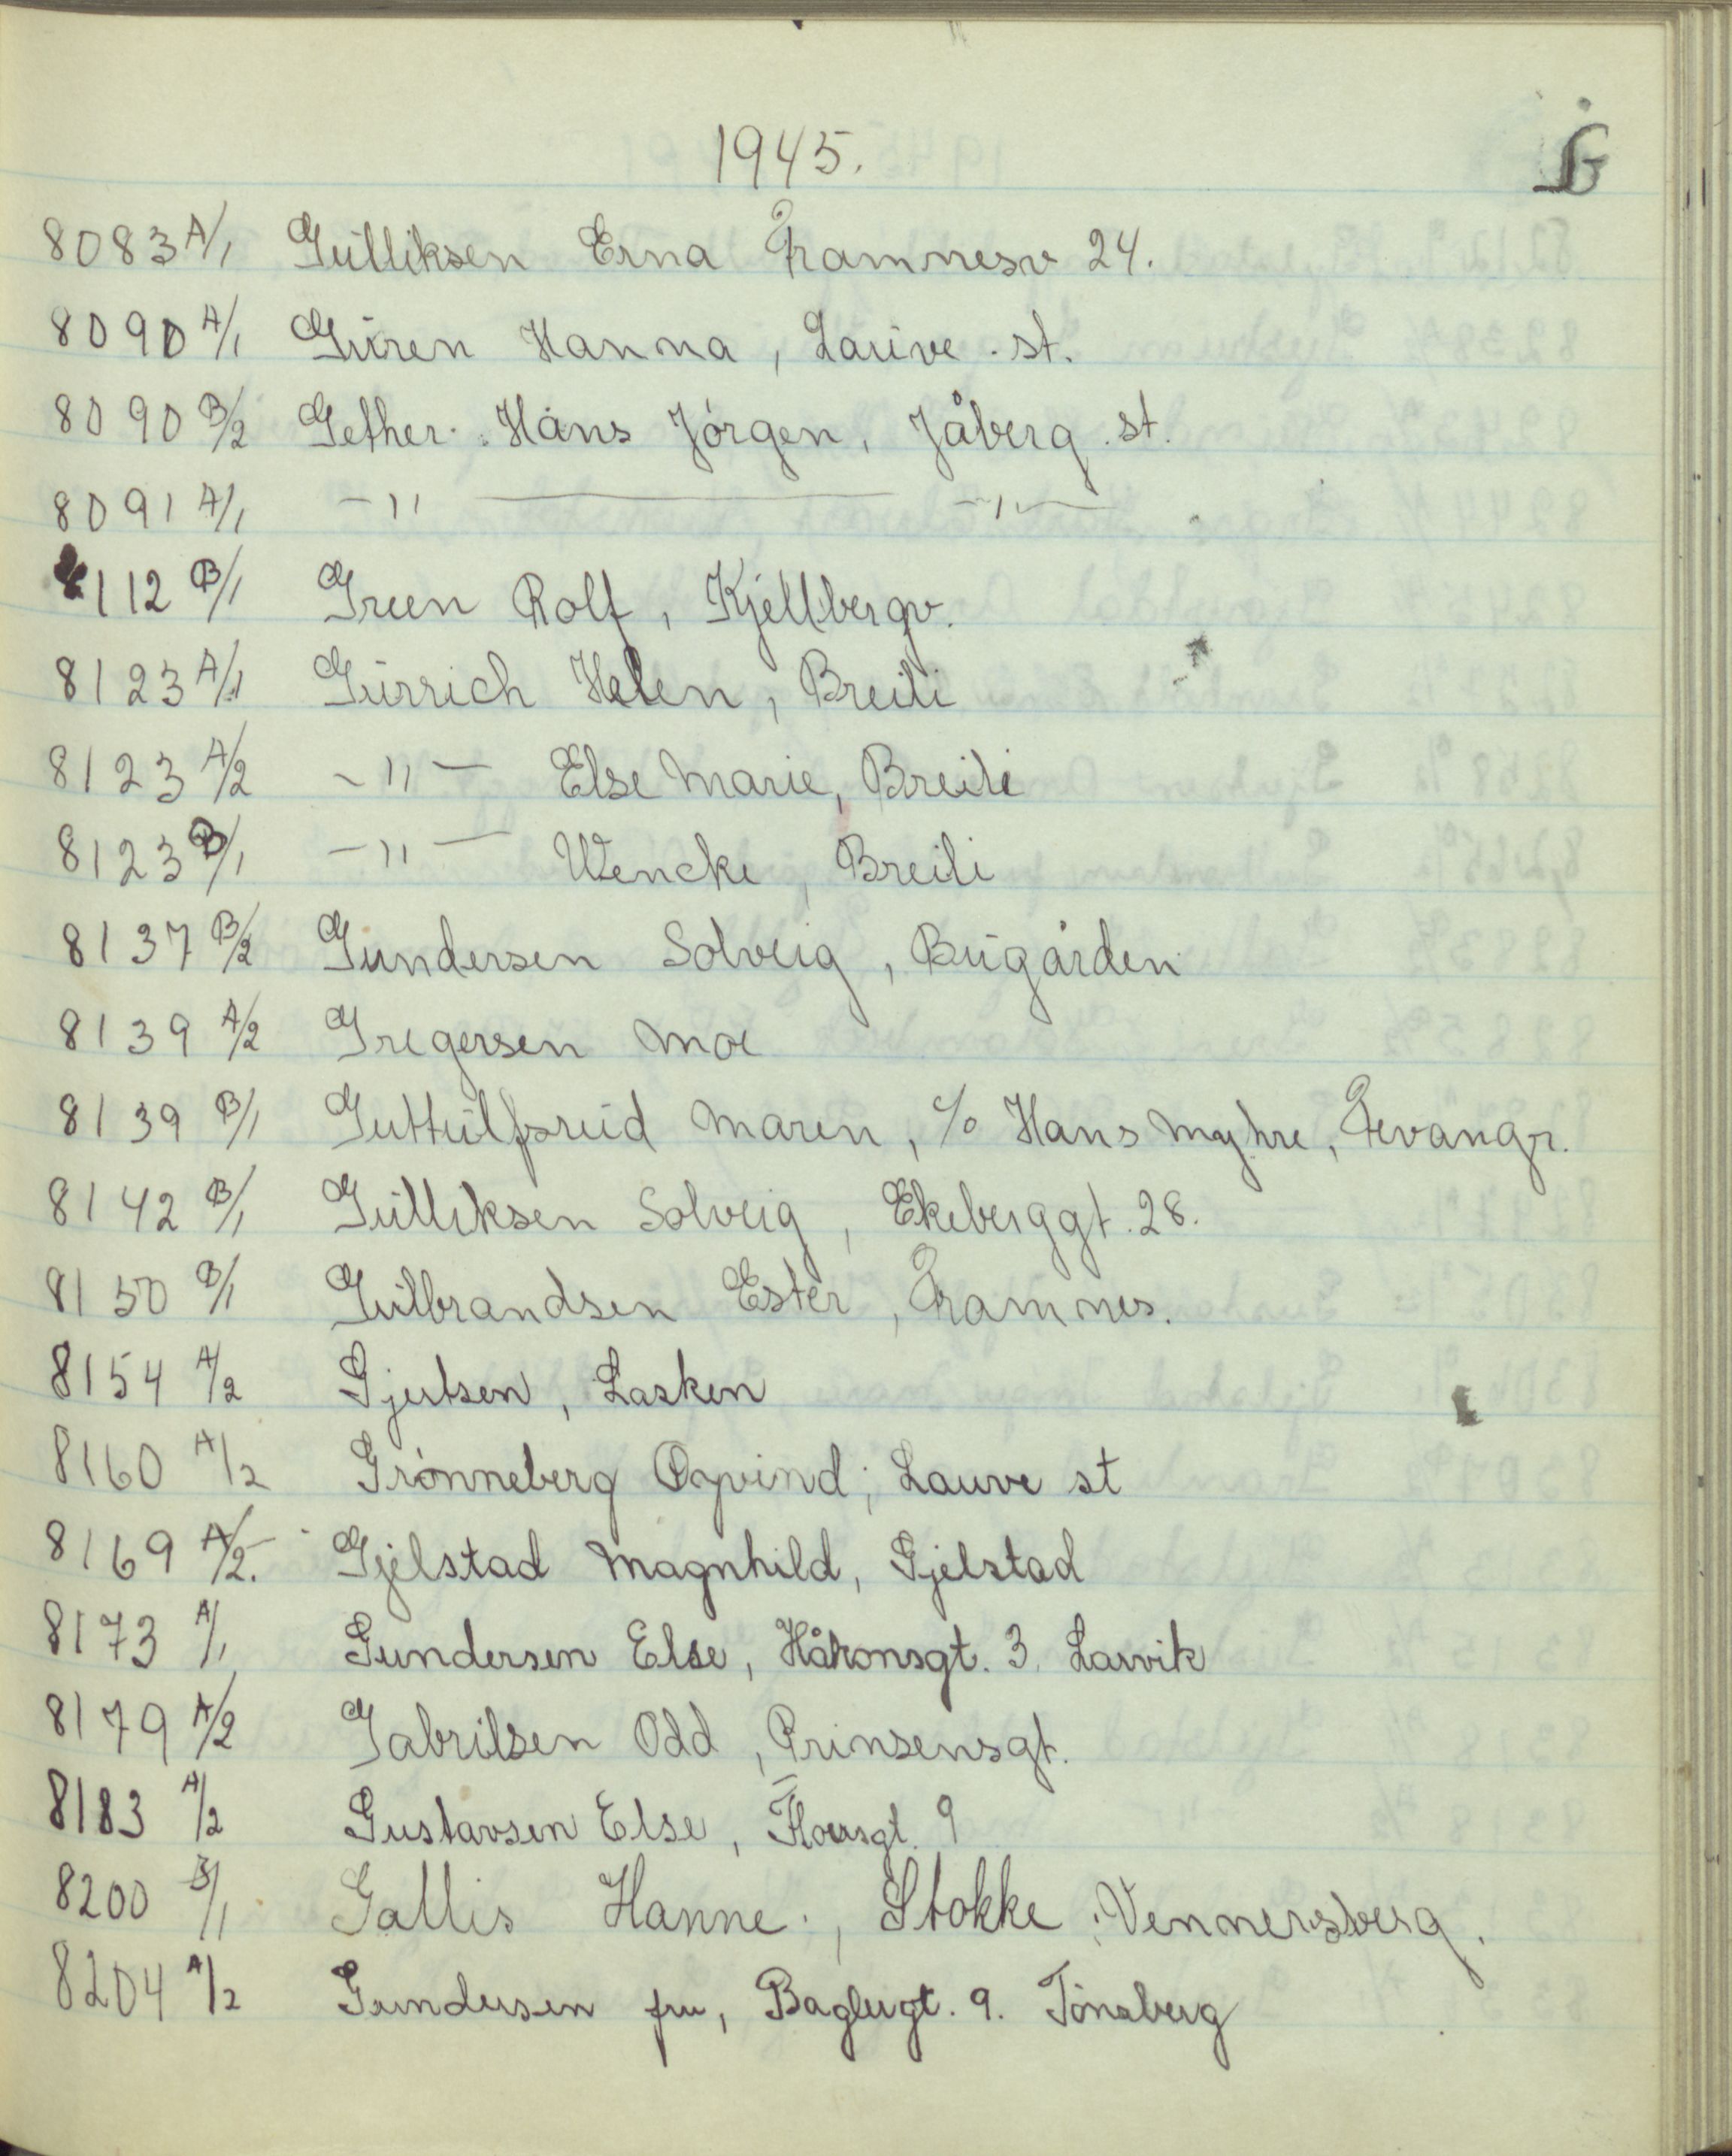 1945.
G
8083 A/1 Gulliksen Erna Framnesv 24.
8090 A/1 Guren Hanna, Lauve st.
8090 B/2 Gether Hans Jörgen, Jåberg st.
8091 A/1 -"- -"-
8112 B/1 Green Rolf, Kjellbergv.
8123 A/1 Gürrich Helen, Breili
8123 A/2 -"- Else Marie, Breili
8123 B/1 -"- Wencke, Breili
8137 B/2 Gundersen Solveig, Bugården
8139 A/2 Gregersen Moe
8139 B/1 Guttulfsrud Maren, c/o Hans Myhre, Fevangr.
8142 B/1 Gulliksen Solveig, Ekeberggt. 28.
8150 B/1 Gulbrandsen Ester, Framnes.
8154 A/2 Gjertsen, Lasken
8160 A/2 Grönneberg Øyvind, Lauve st
8169 A/2. Gjelstad Magnhild, Gjelstad
8173 A/1 Gundersen Else, Håkonsgt. 3. Larvik
8179 A/2 Gabrilsen Odd, Prinsensgt.
8183 A/2 Gustavsen Else, 9
8200 B/1 Gallis Hanne, Stokke, Vennersberg.
8204 A/2 Gundersen fru, Baglergt. 9. Tönsberg